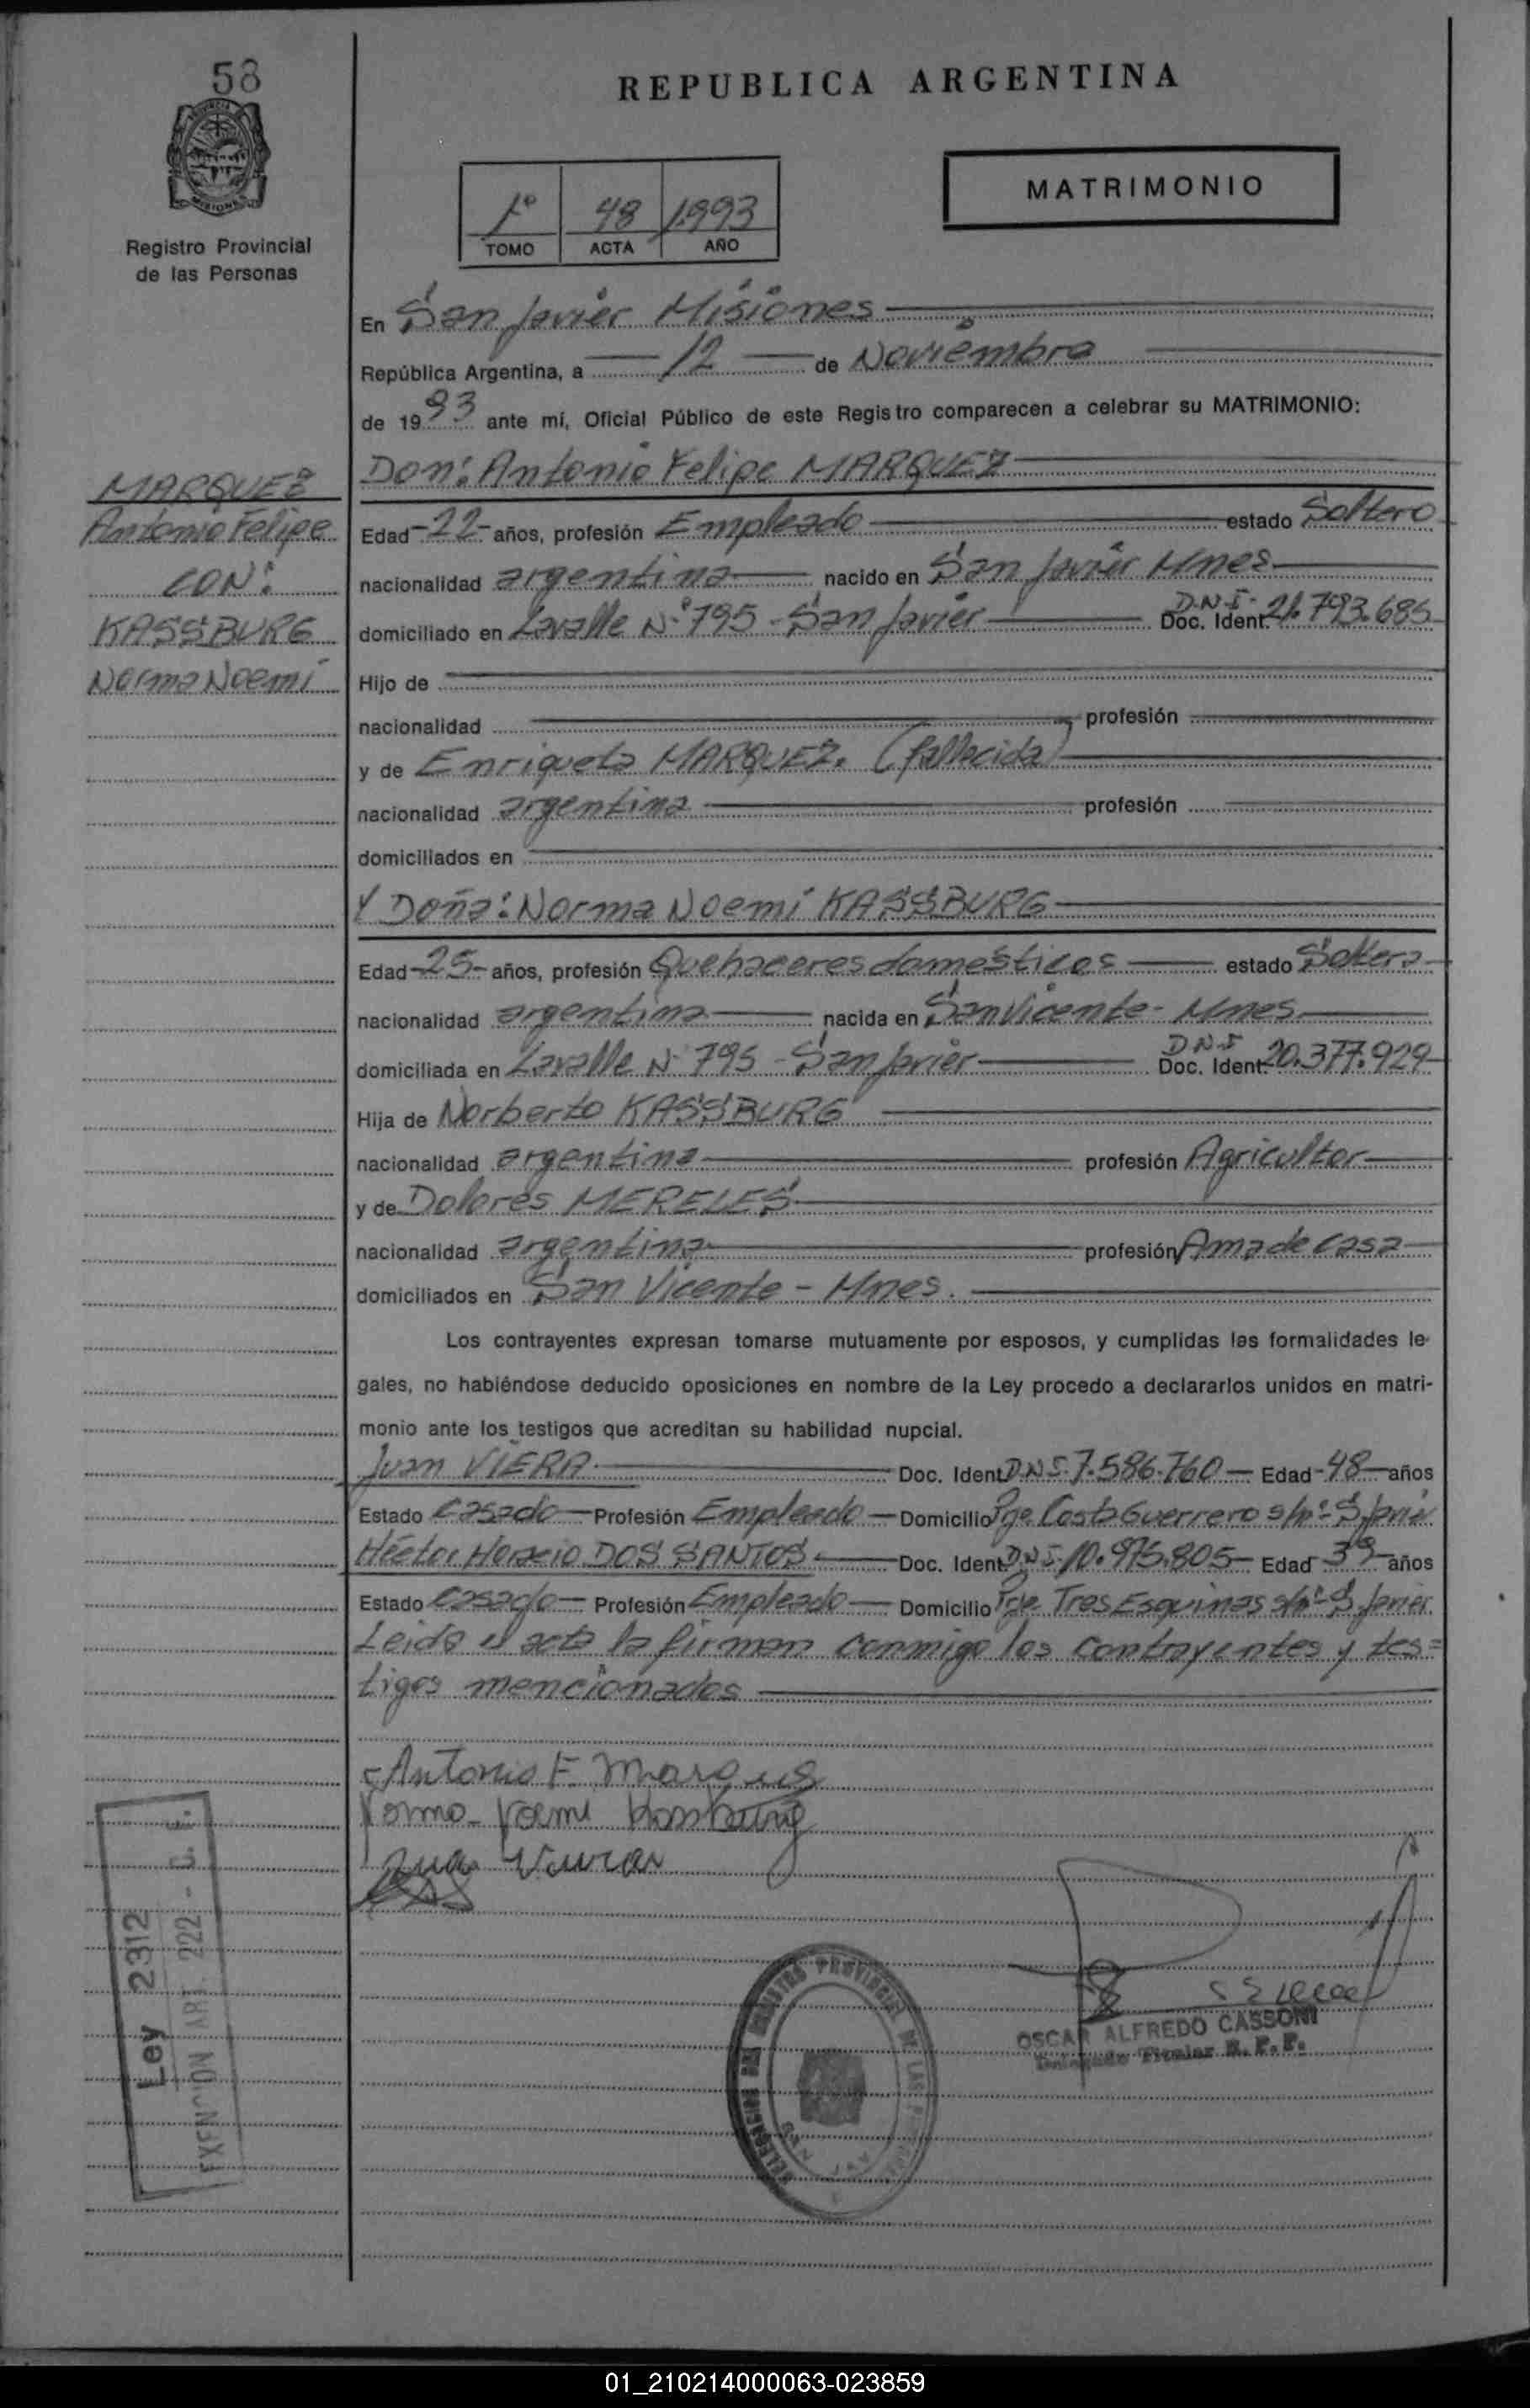 58
REPUBLICA ARGENTINA
MATRIMONIO
1º 48 1993
TOMO ACTA AÑO
Registro Provincial
de las Personas
En San Javier Misiones
República Argentina, a 12 de Noviembre
de 1993 ante mí, Oficial Público de este Registro comparecen a celebrar su MATRIMONIO:
MARQUEZ
Antonio Felipe
CON:
KASSBURG
Norma Noemí
Don: Antonio Felipe MARQUEZ
Edad -22- años, profesión Empleado estado Soltero
nacionalidad argentina nacido en San Javier Mnes
domiciliado en Lavalle Nº 795 - San Javier Doc. Ident. D.N.I. 21.793.685
Hijo de
nacionalidad profesión
y de Enriqueta MARQUEZ. (fallecida)
nacionalidad argentina profesión
domiciliados en
Y Doña: Norma Noemí KASSBURG
Edad -25- años, profesión Quehaceres domésticos estado Soltera
nacionalidad argentina nacida en San Vicente - Mnes
domiciliada en Lavalle Nº 795 - San Javier Doc. Ident. DNI 20.377.929
Hija de Norberto KASSBURG
nacionalidad argentina profesión Agricultor
y de Dolores MERELES
nacionalidad argentina profesión Ama de casa
domiciliados en San Vicente - Mnes.
Los contrayentes expresan tomarse mutuamente por esposos, y cumplidas las formalidades le-
gales, no habiéndose deducido oposiciones en nombre de la Ley procedo a declararlos unidos en matri-
monio ante los testigos que acreditan su habilidad nupcial.
Juan VIERA Doc. Ident. DNI 7.586.760 Edad -48- años
Estado Casado Profesión Empleado Domicilio Pje. Costa Guerrero s/nº S. Javier
Héctor Horacio DOS SANTOS Doc. Ident. DNI 10.975.805 Edad 39 años
Estado Casado Profesión Empleado Domicilio Pje. Tres Esquinas s/nº S. Javier
Leido el acta la firman conmigo los contrayentes y tes=
tigos mencionados
Antonio F. Marquez
Norma Noemi Kassburg
Juan Viera
Ley 2312
EXENCION ART. 222 - C. F.
DELEGACION DEL REGISTRO PROVINCIAL DE LAS PERSONAS
SAN JAVIER
OSCAR ALFREDO CASSONI
Delegado Titular R. P. P.
01_210214000063-023859